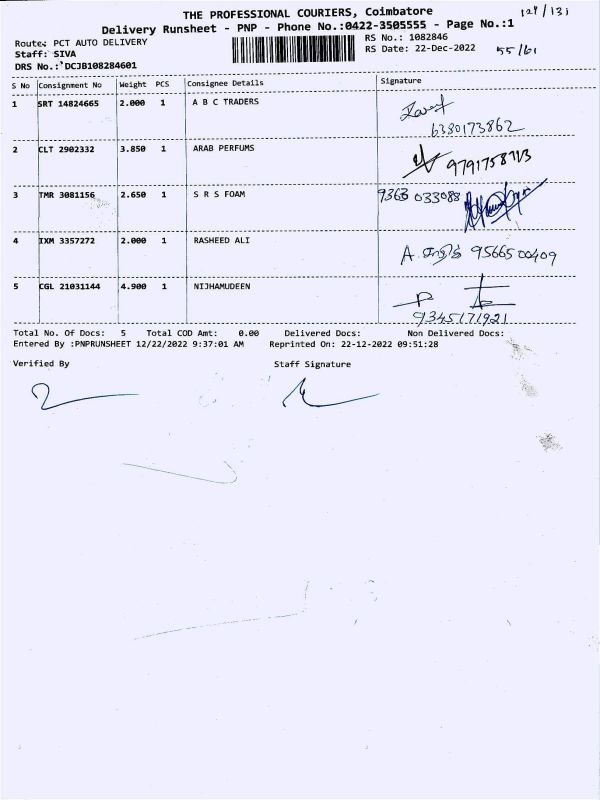 THE PROFESSIONAL COURIERS, Coimbatore
Delivery Runsheet - PNP - Phone No.:0422-3505555 - Page No.:1
Route: PCT AUTO DELIVERY RS No.: 1082846
Staff: SIVA RS Date: 22-Dec-2022 55/61
DRS No.: DCJB108284601
S No Consignment No Weight PCS Consignee Details Signature
1 SRT 14824665 2.000 1 A B C TRADERS
6380173862
2 CLT 2902332 3.850 1 ARAB PERFUMS
3 TMR 3081156 2.650 1 S R S FOAM 9363 033088
4 IXM 3357272 2.000 1 RASHEED ALI A. 9566500409
5 CGL 21031144 4.900 1 NIJHAMUDEEN
9345171921
Total No. Of Docs: 5 Total COD Amt: 0.00 Delivered Docs: Non Delivered Docs:
Entered By :PNPRUNSHEET 12/22/2022 9:37:01 AM Reprinted On: 22-12-2022 09:51:28
Verified By Staff Signature